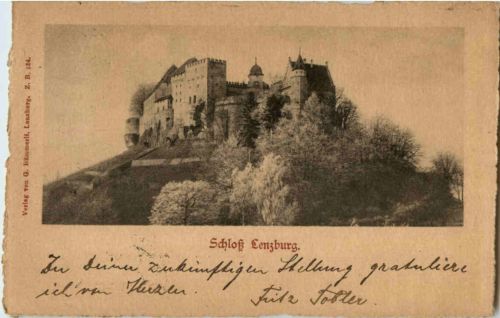 Verlag von G. Dümmerli, Lenzburg. Z. B. 124.
Schloß Lenzburg.
Zu Deiner zukünftigen Stellung gratuliere
ich von Herzen. Fritz Tobler.